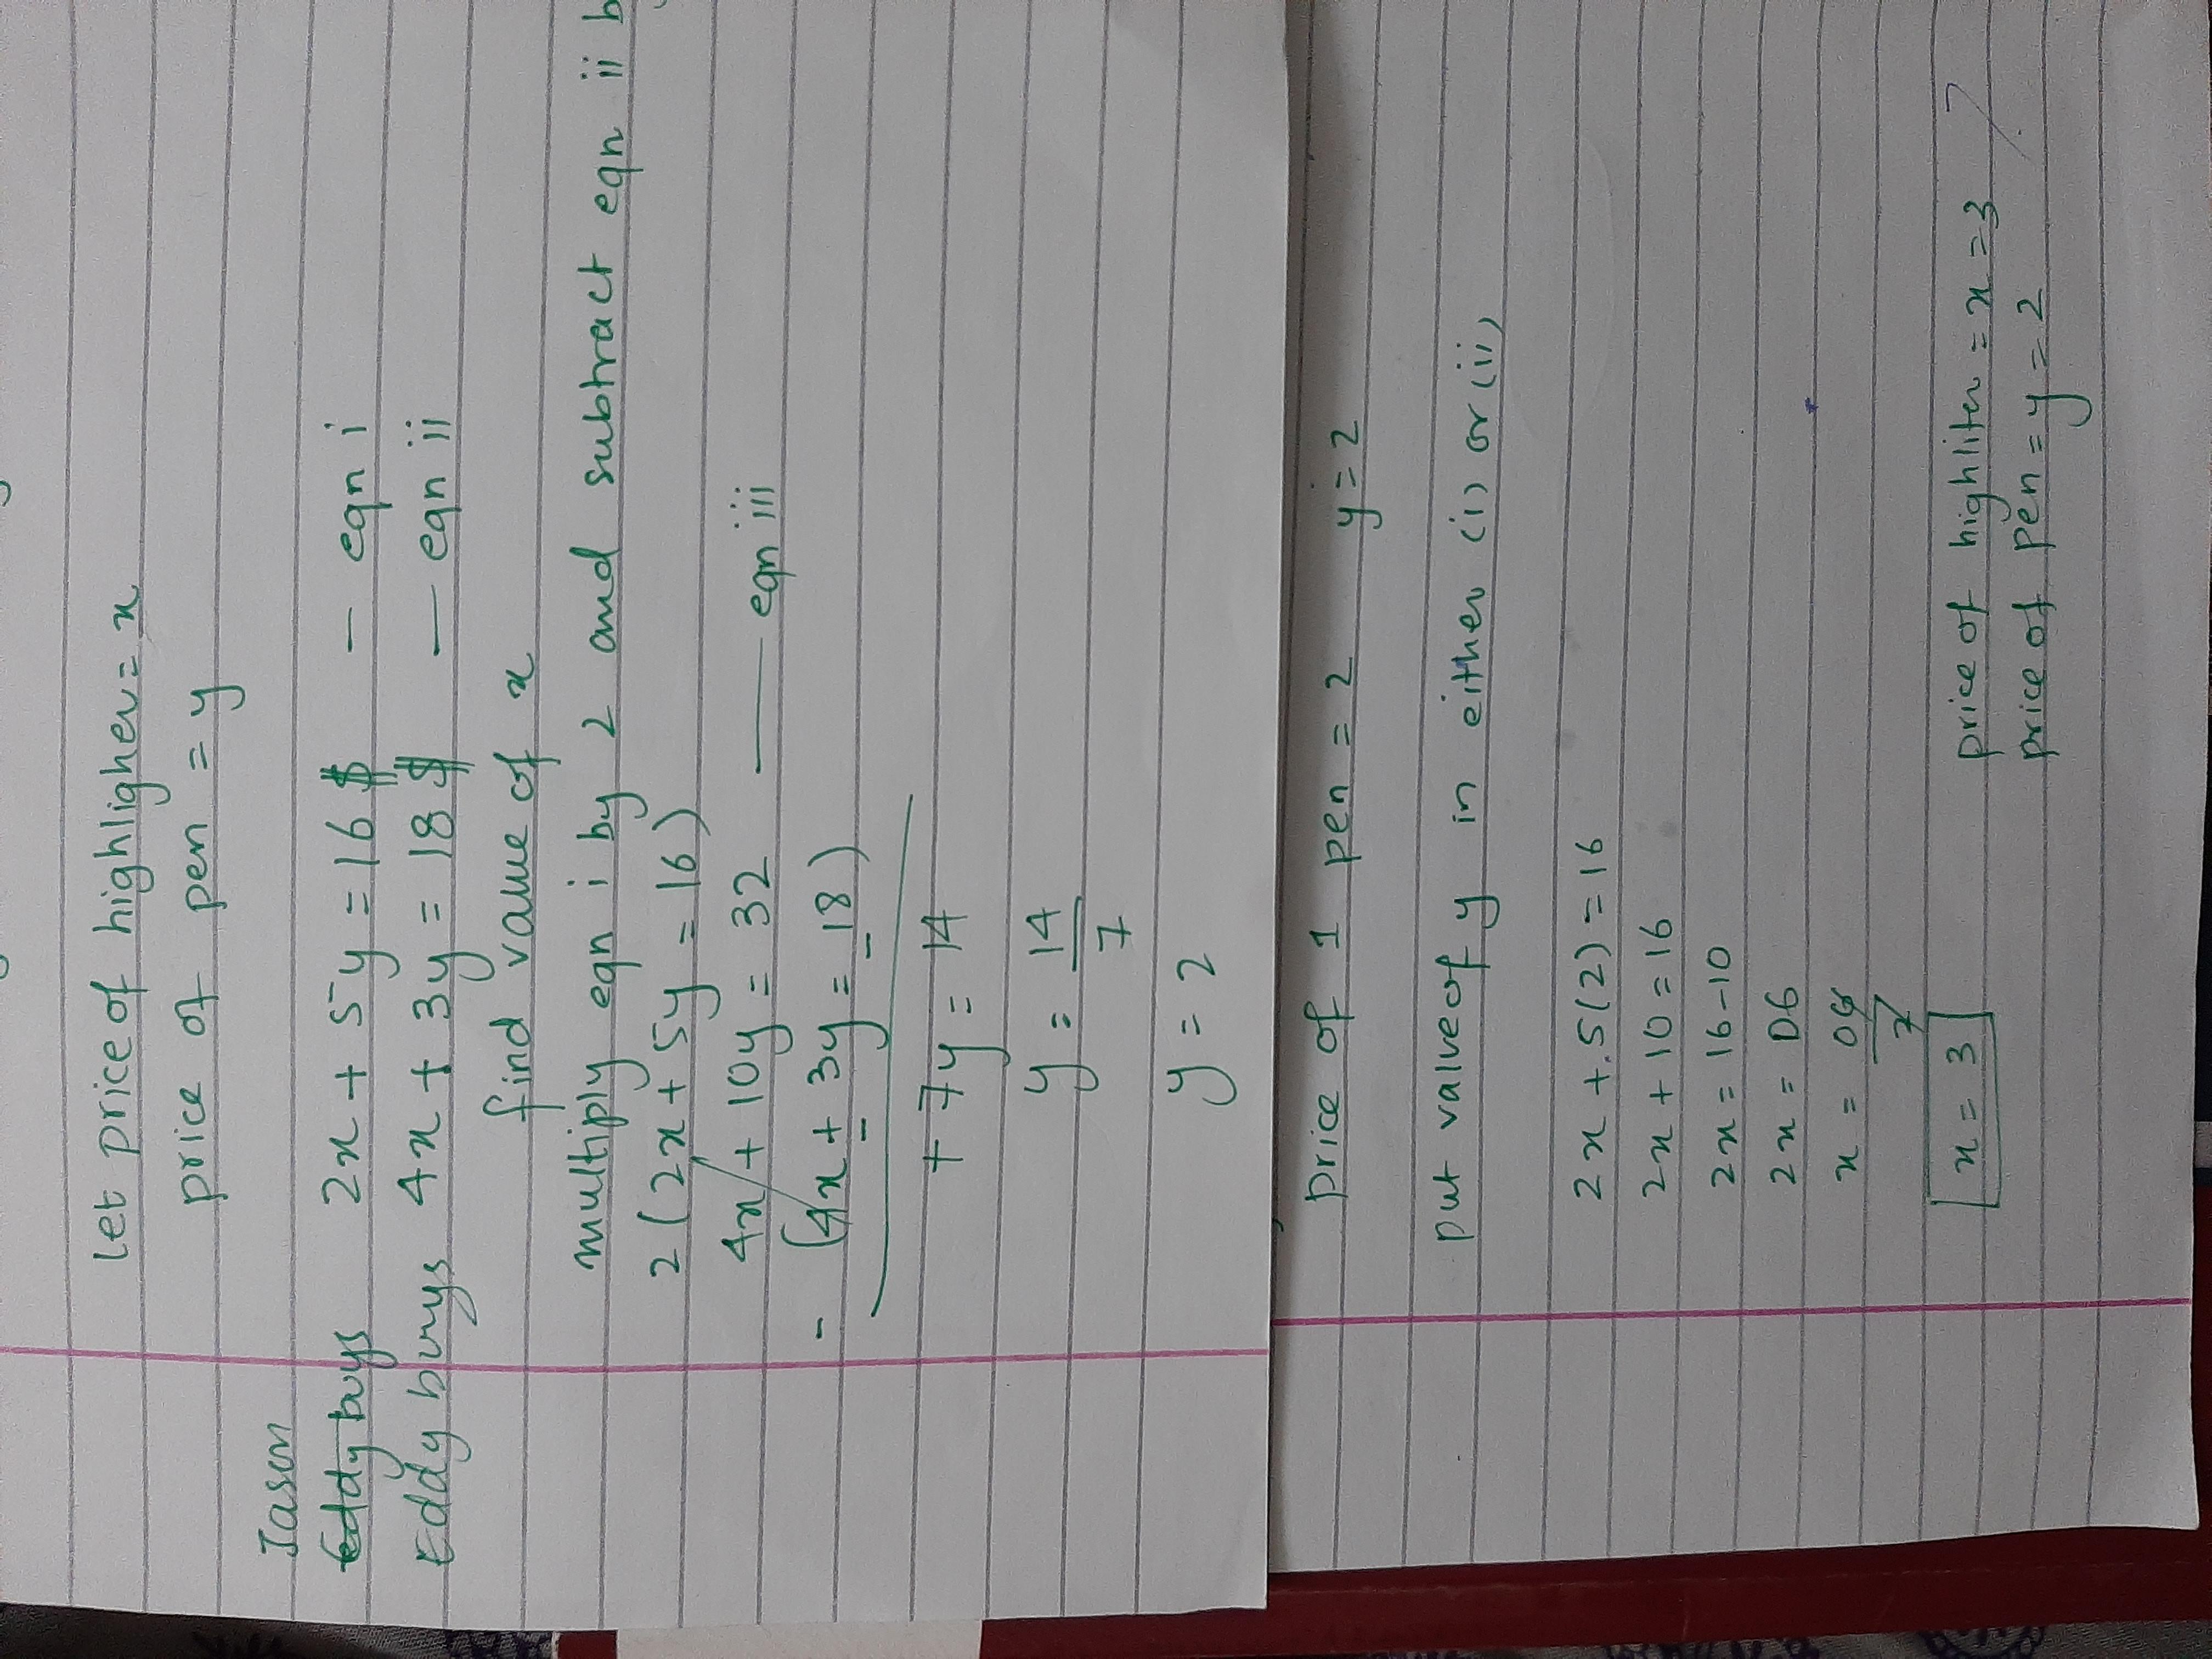 Let price of highligher = x
price of pen = y
Jason
Eddy buys 2x + 5y = 16 $ — eqn i
Eddy buys 4x + 3y = 18 $ — eqn ii
find value of x
multiply eqn i by 2 and subtract eqn ii b
2 (2x + 5y = 16)
4x + 10y = 32 — eqn iii
- (4x + 3y = 18)
- -
+ 7y = 14
y = 14/7
y = 2
price of 1 pen = 2 y = 2
put value of y in either (i) or (ii)
2x + 5(2) = 16
2x + 10 = 16
2x = 16-10
2x = 06
x = 06/2
x = 3
price of highliter = x = 3
price of pen = y = 2